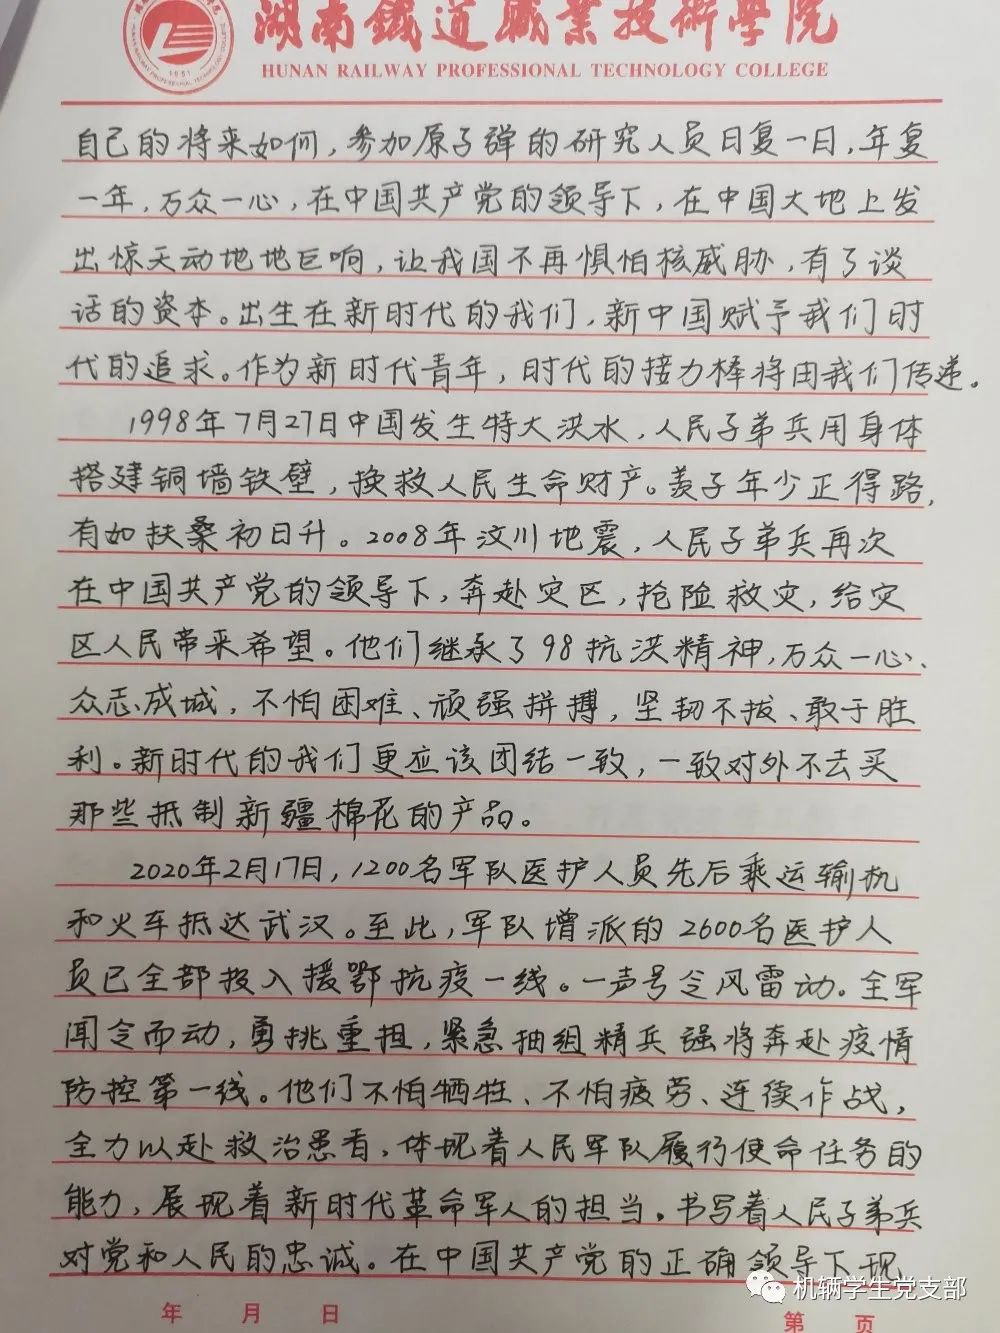 湖南鐵道職業技術學院
HUNAN RAILWAY PROFESSIONAL TECHNOLOGY COLLEGE
1951
自己的将来如何，参加原子弹的研究人员日复一日，年复
一年，万众一心，在中国共产党的领导下，在中国大地上发
出惊天动地地巨响，让我国不再惧怕核威胁，有了谈
话的资本。出生在新时代的我们，新中国赋予我们时
代的追求。作为新时代青年，时代的接力棒将由我们传递。
1998年7月27日中国发生特大洪水，人民子弟兵用身体
搭建铜墙铁壁，换救人民生命财产。羡子年少正得路，
有如扶桑初日升。2008年汶川地震，人民子弟兵再次
在中国共产党的领导下，奔赴灾区，抢险救灾，给灾
区人民带来希望。他们继承了98抗洪精神，万众一心、
众志成城，不怕困难、顽强拼搏，坚韧不拔、敢于胜
利。新时代的我们更应该团结一致，一致对外不去买
那些抵制新疆棉花的产品。
2020年2月17日，1200名军队医护人员先后乘运输机
和火车抵达武汉。至此，军队增派的2600名医护人
员已全部投入援鄂抗疫一线。一声号令风雷动．全军
闻令而动，勇挑重担，紧急抽组精兵强将奔赴疫情
防控第一线。他们不怕牺牲、不怕疲劳、连续作战，
全力以赴救治患者，体现着人民军队履行使命任务的
能力，展现着新时代革命军人的担当。书写着人民子弟兵
对党和人民的忠诚。在中国共产党的正确领导下现
机辆学生党支部
年 月 日 第 页